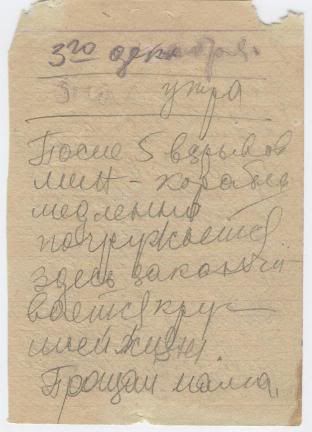 3го декабря.
утра
После 5 взрывов
мин - корабль
медленно
погружается.
здесь заканчи-
вается круг
моей жизни.
Прощай мама,